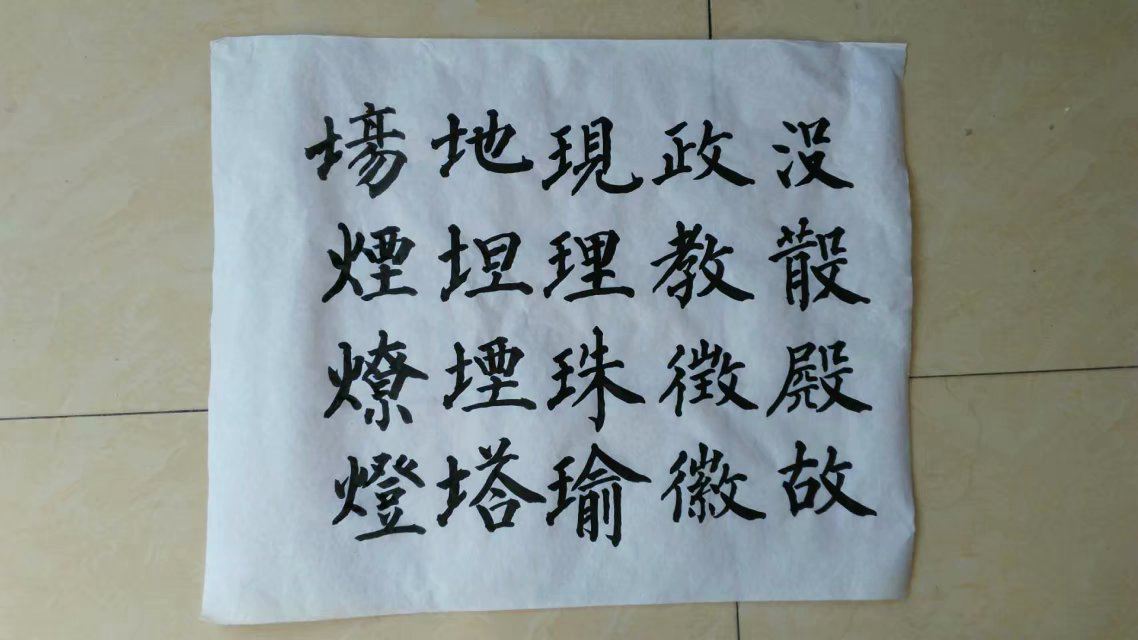 没殿故
政教徵徽
現理珠瑜
地坦堙塔
塲煙燎燈